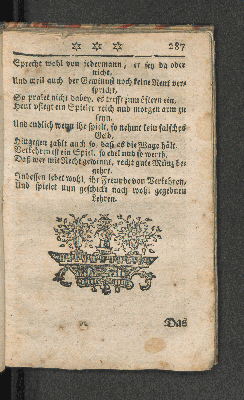 287
Sprecht wohl von jedermann, er sey da oder
nicht.
Und weil auch der Gewinnst noch keine Rent ver-
spricht,
So prahlet nicht dabey, es trifft zum öftern ein,
Heut pflegt ein Spieler reich und morgen arm zu
seyn.
Und endlich wenn ihr spielt, so nehmt kein falsches
Geld.
Hingegen zahlt auch so, daß es die Wage hält.
Verkehren ist ein Spiel, so edel und so werth,
Daß wer mit Recht gewinnt, recht gute Münz be-
gehrt.
Indessen lebet wohl, ihr Freunde von Verkehren,
Und spielet nun geschickt nach wohl gegebnen
Lehren.
Das